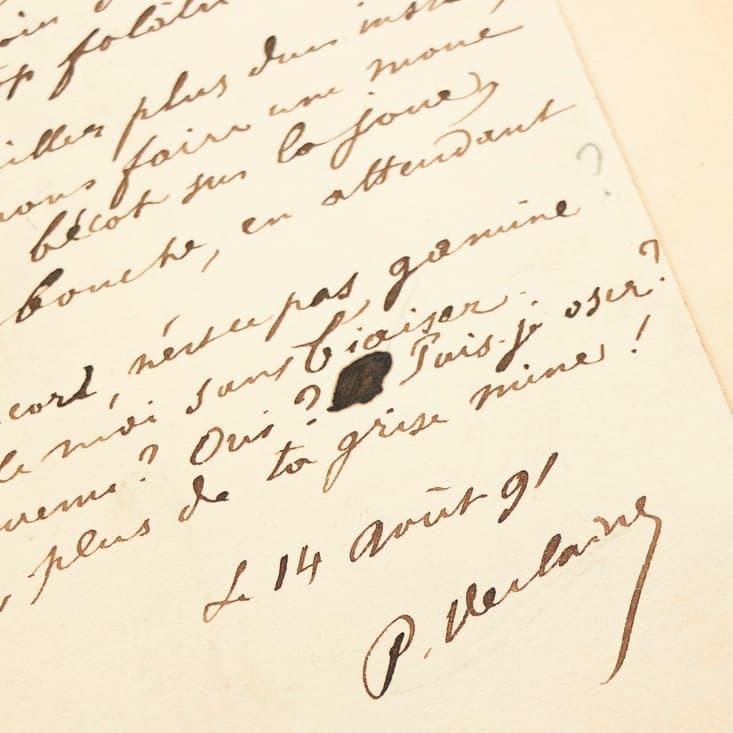 folâtre
plus d'un
faire une moue
bécot sur la joue,
bouche, en attendant
?
n'est ce pas gamine?
moi sans biaiser.
? Oui? Puis-je oser?
, plus de ta grise mine!
Le 14 Août 91
P. Verlaine